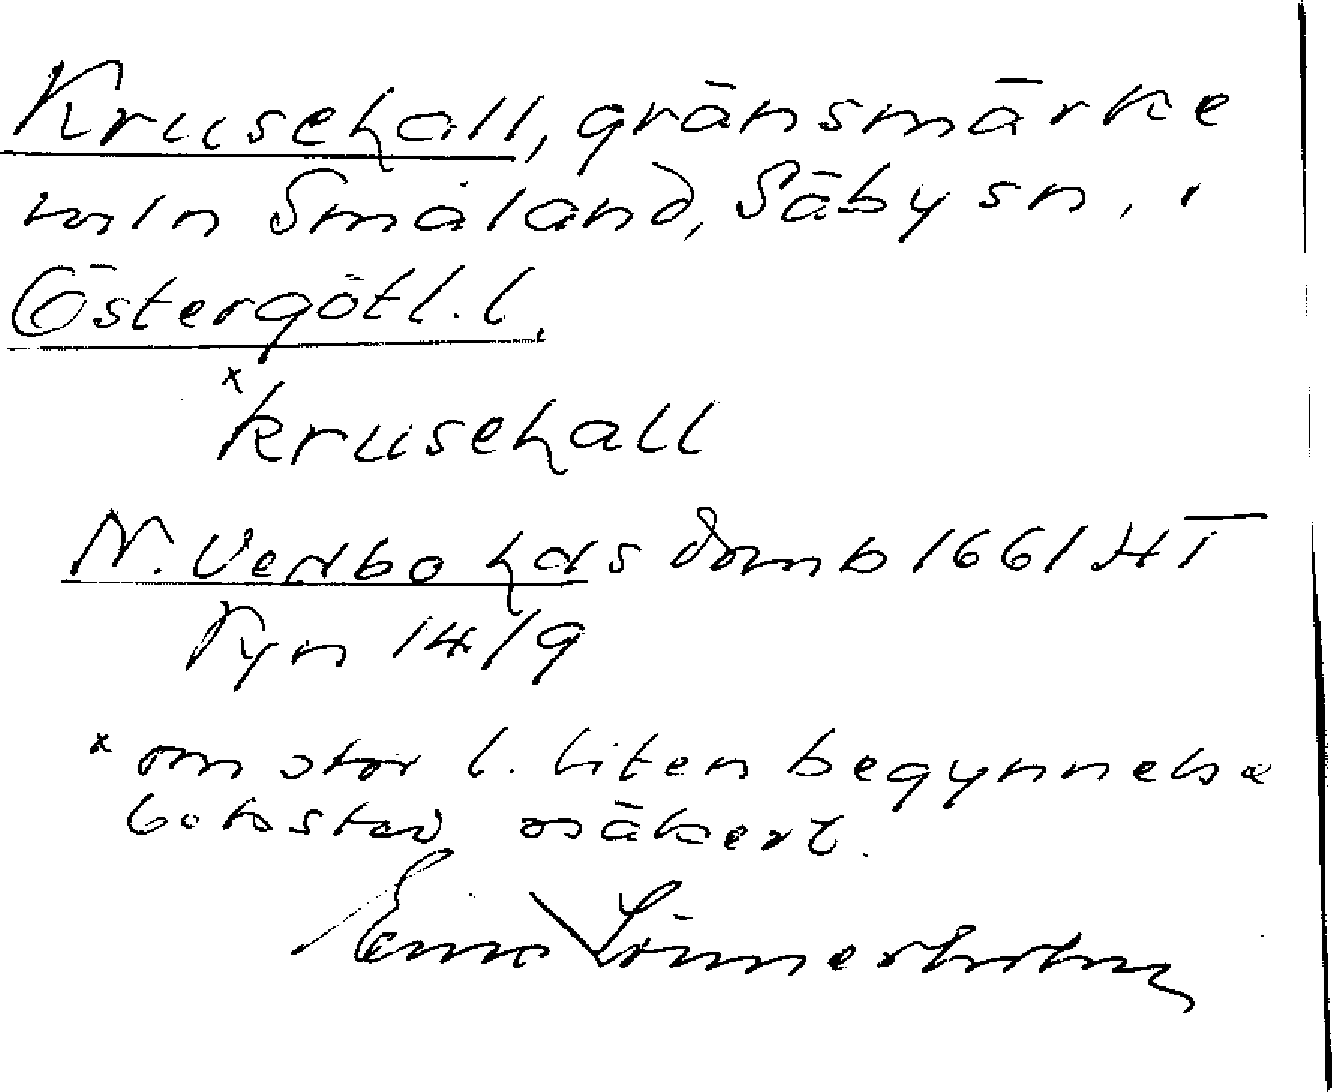 Krusehall, gränsmärke
mln Småland, Säby sn, i
Östergötl. l.
x
krusehall
N. Vedbo hds domb 1661 HT
Ryn 14/9
x om stor l. liten begynnelse
bokstav osäkert.
Einar Lönnerholm